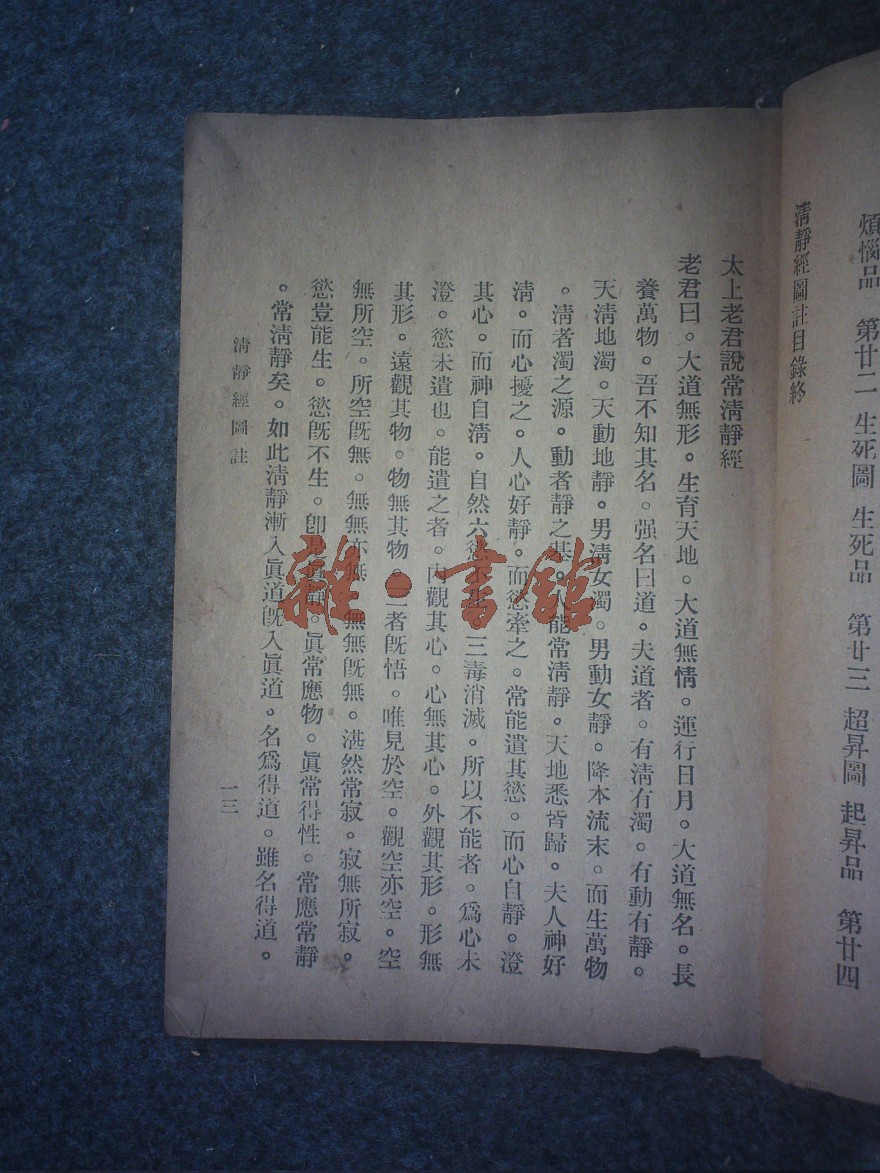 煩惱品　第廿二　生死圖　生死品　第廿三　超昇圖　起昇品　第廿四
清靜經圖註目錄終
太上老君說常清靜經
老君曰。大道無形。生育天地。大道無情。運行日月。大道無名。長
養萬物。吾不知其名。强名曰道。夫道者。有清有濁。有動有靜。
天清地濁。天動地靜。男清女濁。男動女靜。降本流末。而生萬物
。清者濁之源。動者靜之基。人能常清靜。天地悉皆歸。夫人神好
清。而心擾之。人心好靜。而慾牽之。常能遣其慾。而心自靜。澄
其心。而神自清。自然六慾不生。三毒消滅。所以不能者。爲心未
澄。慾未遣也。能遣之者。內觀其心。心無其心。外觀其形。形無
其形。遠觀其物。物無其物。三者旣悟。唯見於空。觀空亦空。空
無所空。所空旣無。無無亦無。無無旣無。湛然常寂。寂無所寂。
慾豈能生。慾旣不生。卽是眞靜。眞常應物。眞常得性。常應常靜
。常清靜矣。如此清靜漸入眞道旣入眞道。名爲得道。雖名得道。
清靜經圖註
一三
雜·書館